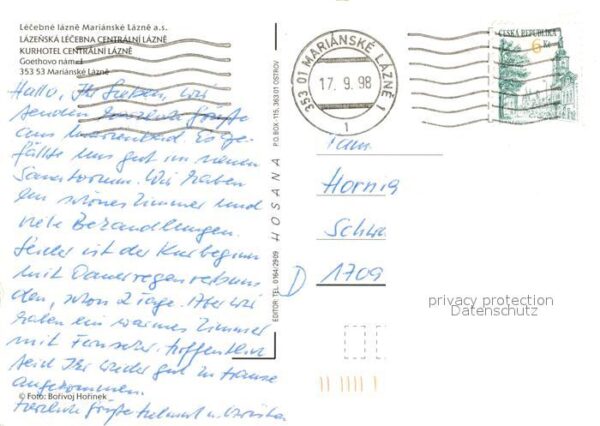 Léčebné lázně Mariánské Lázně a.s.
LÁZEŇSKÁ LÉČEBNA CENTRÁLNÍ LÁZNĚ
KURHOTEL CENTRÁLNÍ LÁZNĚ
Goethovo nám.1
353 53 Mariánské Lázně
Hallo, Ihr Lieben, wir
senden herzliche Grüße
aus Marienbad. Es ge-
fällt uns gut im neuen
Sanatorium. Wir haben
ein schönes Zimmer und
viele Behandlungen.
Leider ist der Kurbeginn
mit Dauerregen verbun
den, schon 2 Tage. Aber wir
haben ein warmes Zimmer
mit Fernseher. Hoffentlich
seid Ihr wieder gut zu Hause
angekommen.
Herzliche Grüße Helmut u.
© Foto: Bořivoj Hořínek
EDITOR TEL. 0164/2909 HOSANA P.O.BOX 115, 363 01 OSTROV
353 01 MARIÁNSKÉ LÁZNĚ 1
17. 9. 98
1
ČESKÁ REPUBLIKA
6 Kč
Fam.
Hornig
Schw
D 1709
privacy protection
Datenschutz